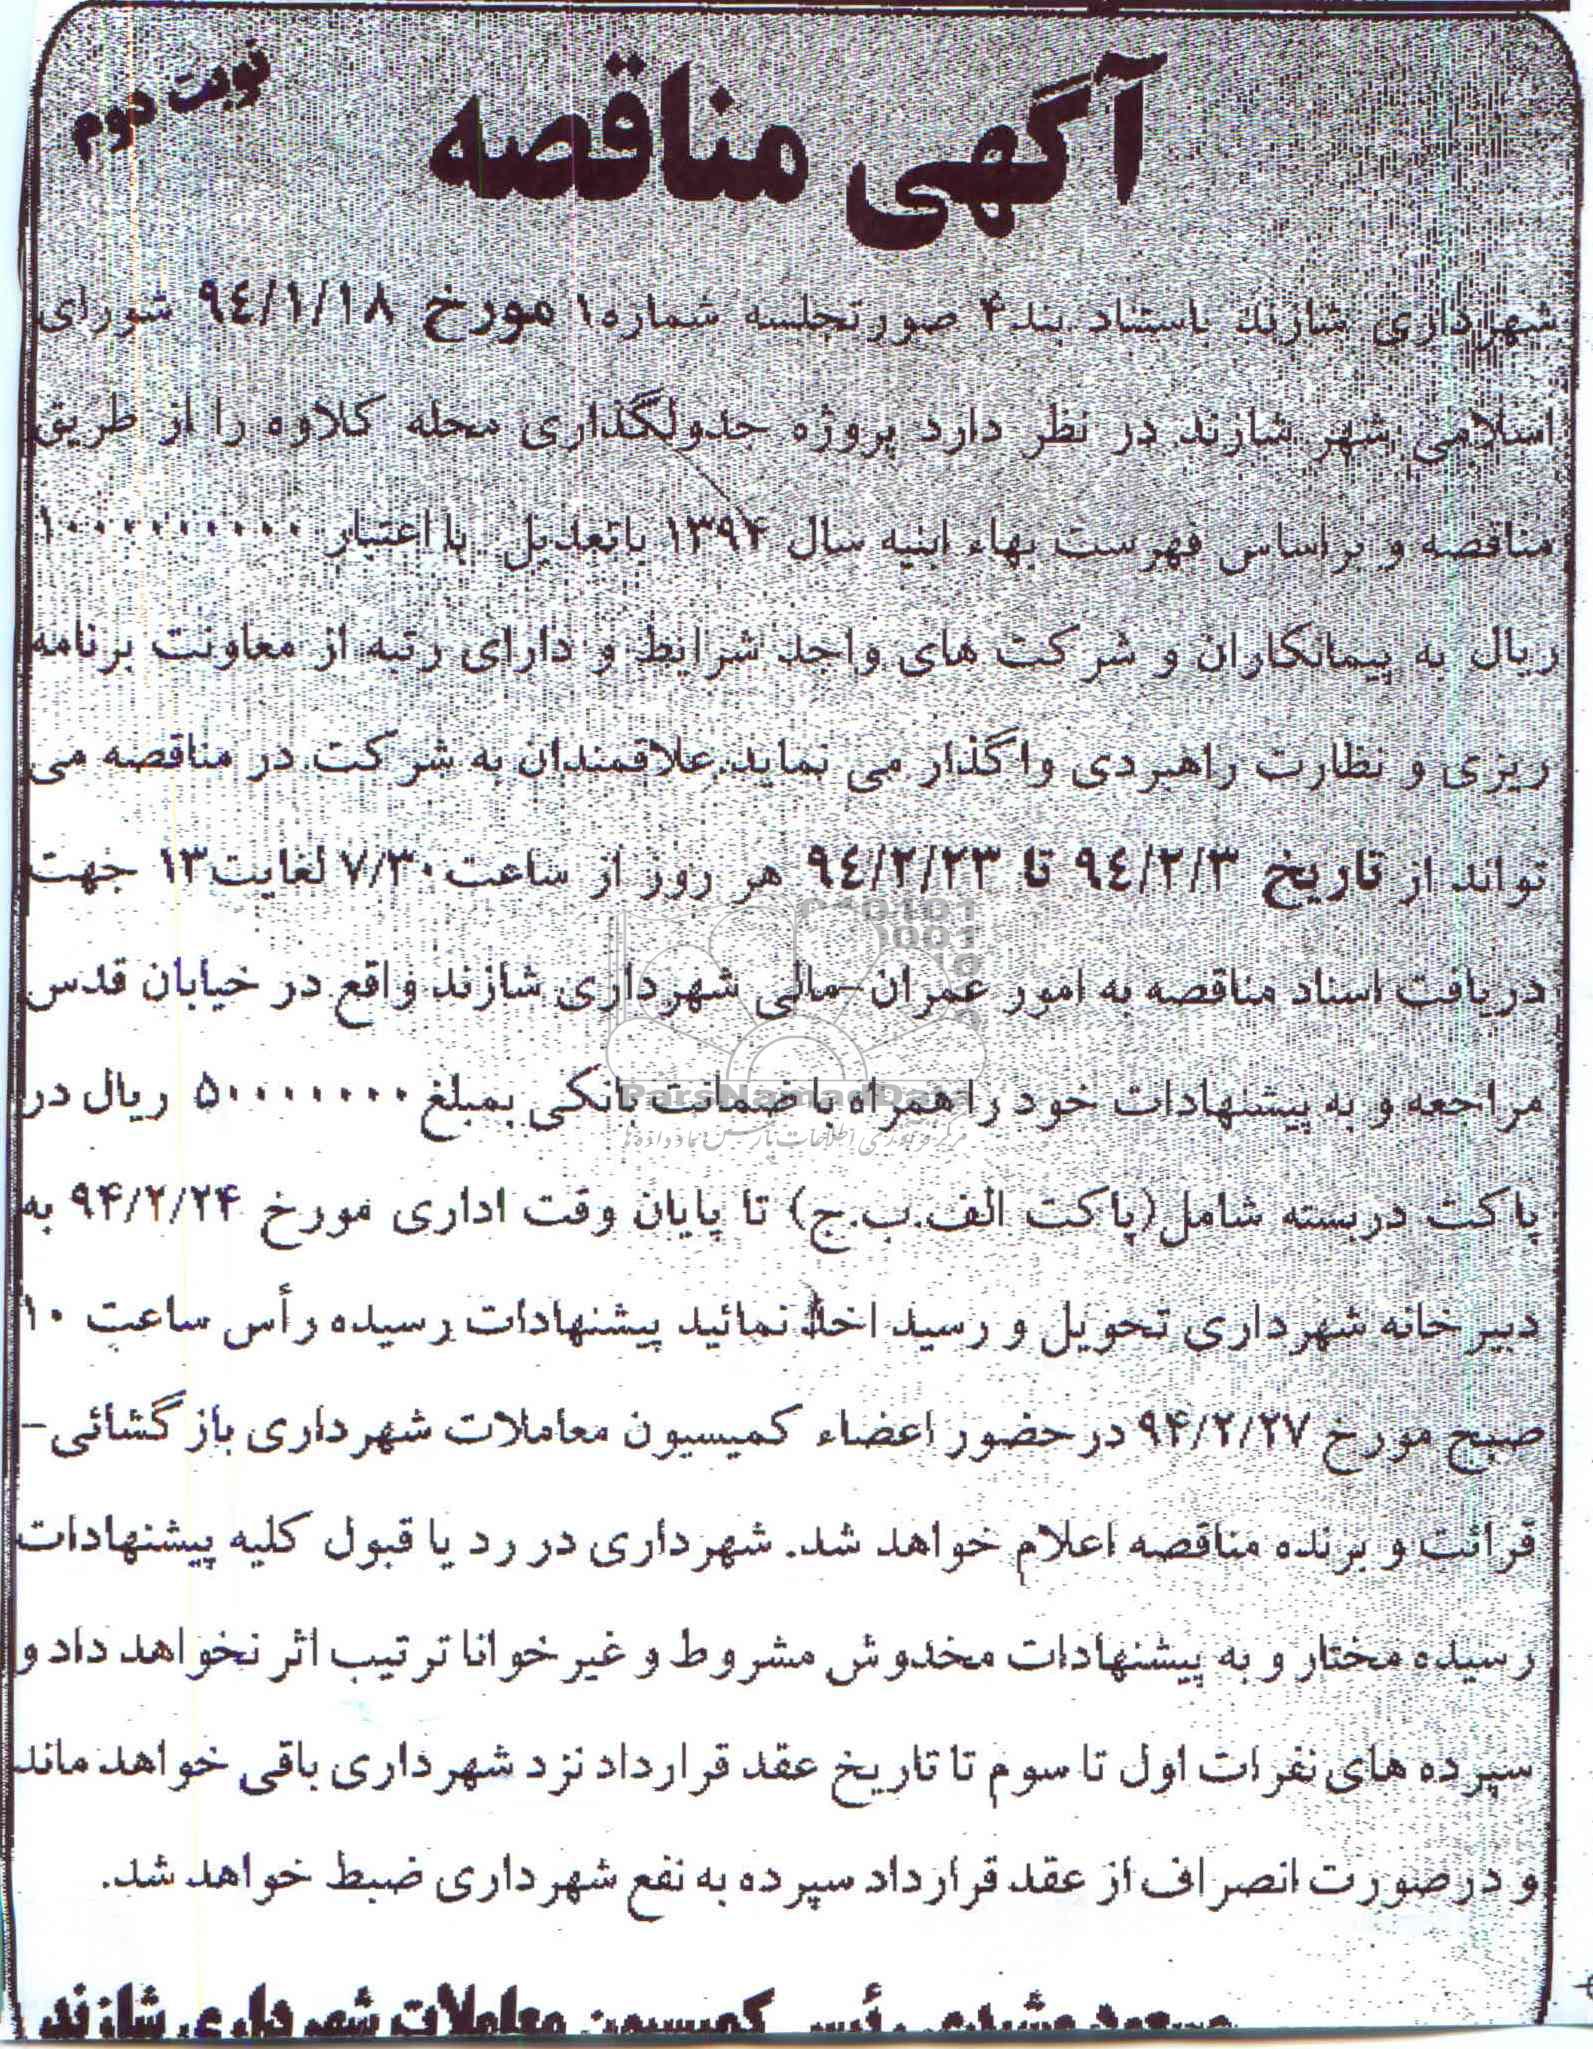 نوبت دوم
آگهی مناقصه
شهرداری شازند باستناد بند۴ صورتجلسه شماره۱ مورخ ۹۴/۱/۱۸ شورای
اسلامی شهر شازند در نظر دارد پروژه جدولگذاری محله کلاوه را از طریق
مناقصه و براساس فهرست بهاء ابنیه سال ۱۳۹۴ باتعدیل با اعتبار ۱۰۰۰۰۰۰۰۰۰
ریال به پیمانکاران و شرکت های واجد شرایط و دارای رتبه از معاونت برنامه
ریزی و نظارت راهبردی واگذار می نماید.علاقمندان به شرکت در مناقصه می
تواند از تاریخ ۹۴/۲/۳ تا ۹۴/۲/۲۳ هر روز از ساعت۷/۳۰ لغایت۱۳ جهت
دریافت اسناد مناقصه به امور عمران-مالی شهرداری شازند واقع در خیابان قدس
مراجعه و به پیشنهادات خود را همراه با ضمانت بانکی بمبلغ ۵۰۰۰۰۰۰۰ ریال در
پاکت دربسته شامل(پاکت الف.ب.ج) تا پایان وقت اداری مورخ ۹۴/۲/۲۴ به
دبیرخانه شهرداری تحویل و رسید اخذ نمائید پیشنهادات رسیده رأس ساعت ۱۰
صبح مورخ ۹۴/۲/۲۷ در حضور اعضاء کمیسیون معاملات شهرداری بازگشائی-
قرائت و برنده مناقصه اعلام خواهد شد. شهرداری در رد یا قبول کلیه پیشنهادات
رسیده مختار و به پیشنهادات مخدوش مشروط و غیرخوانا ترتیب اثر نخواهد داد و
سپرده های نفرات اول تا سوم تا تاریخ عقد قرارداد نزد شهرداری باقی خواهد ماند
و درصورت انصراف از عقد قرارداد سپرده به نفع شهرداری ضبط خواهد شد.
رئیس کمیسیون معاملات شهرداری شازند
ParsNamadData
مرکز فرآوری اطلاعات پارس نماد داده ها